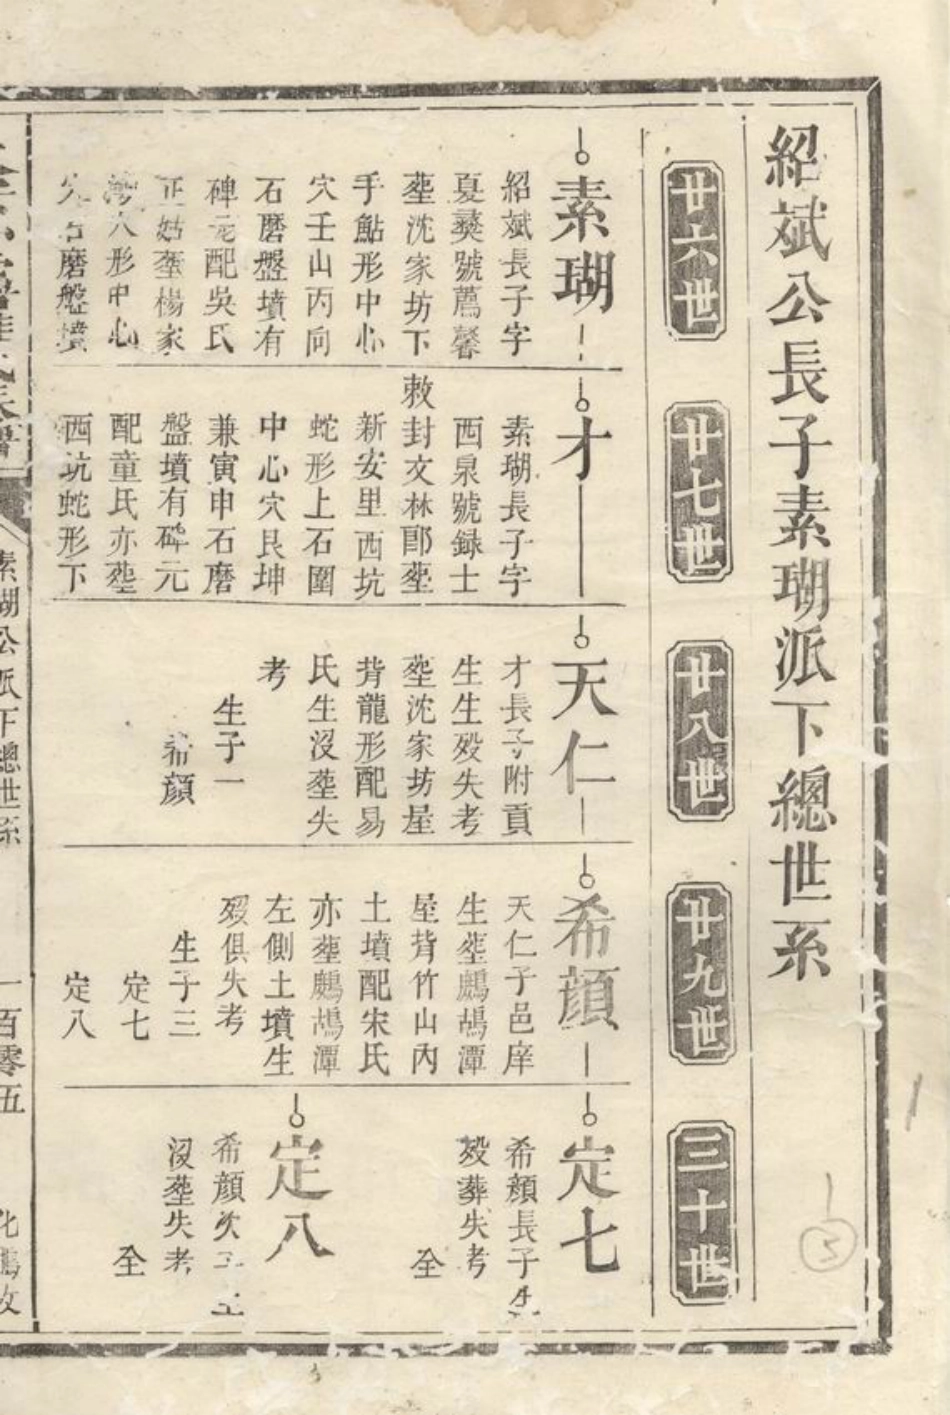 紹斌公長子素瑚派下總世系
廿六世
廿七世
廿八世
廿九世
三十世
素瑚
紹斌長子字
夏彝號薦馨
塟沈家坊下
手鮎形中心
穴壬山丙向
石磨盤墳有
碑元配吳氏
正姑塟楊家
灣人形中心
穴石磨盤墳
才
素瑚長子字
西泉號録士
敕封文林郎塟
新安里西坑
蛇形上石圍
中心穴艮坤
兼寅申石磨
盤墳有碑元
配童氏亦塟
西坑蛇形下
天仁
才長子附貢
生生殁失考
塟沈家坊屋
背龍形配易
氏生沒塟失
考
生子一
希顏
希顏
天仁子邑庠
生塟鷓鴣潭
屋背竹山內
土墳配宋氏
亦塟鷓鴣潭
左側土墳生
殁俱失考
生子三
定七
定八
定七
希顏長子生
殁葬失考
仝
定八
希顏次子生
沒塟失考
仝
素瑚公派下總世系
一百零五
③